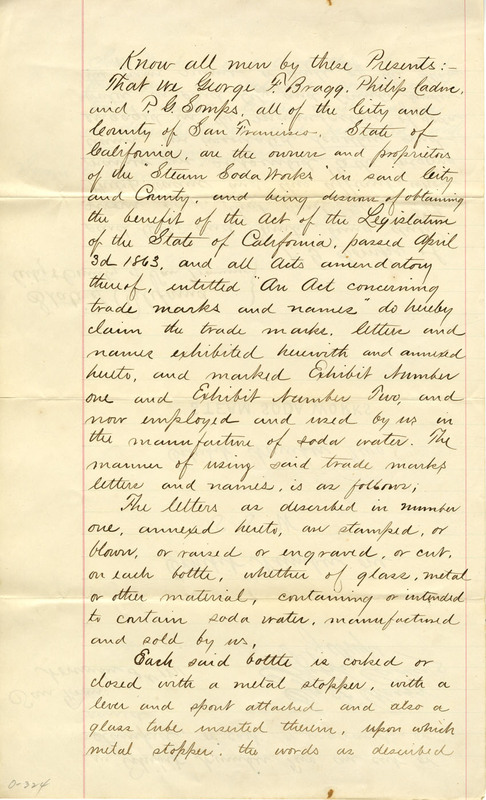 Know all men by these Presents:-
That we George F. Bragg, Philip Caduc,
and P. G. Somps, all of the City and
County of San Francisco, State of
California, are the owners and proprietors
of the "Steam Soda Works" in said City
and County, and being desirous of obtaining
the benefit of the Act of the Legislature
of the State of California, passed April
3d 1863, and all Acts amendatory
thereof, entitled "An Act concerning
trade marks and names" do hereby
claim the trade marks, letters and
names exhibited herewith and annexed
hereto, and marked Exhibit Number
one and Exhibit Number Two, and
now employed and used by us in
the manufacture of soda water. The
manner of using said trade marks
letters and names, is as follows;
The letters as described in number
one, annexed hereto, are stamped, or
blown, or raised or engraved, or cut,
on each bottle, whether of glass, metal
or other material, containing or intended
to contain soda water, manufactured
and sold by us,
Each said bottle is corked or
closed with a metal stopper, with a
lever and spout attached and also a
glass tube inserted therein, upon which
metal stopper, the words as described
0-324